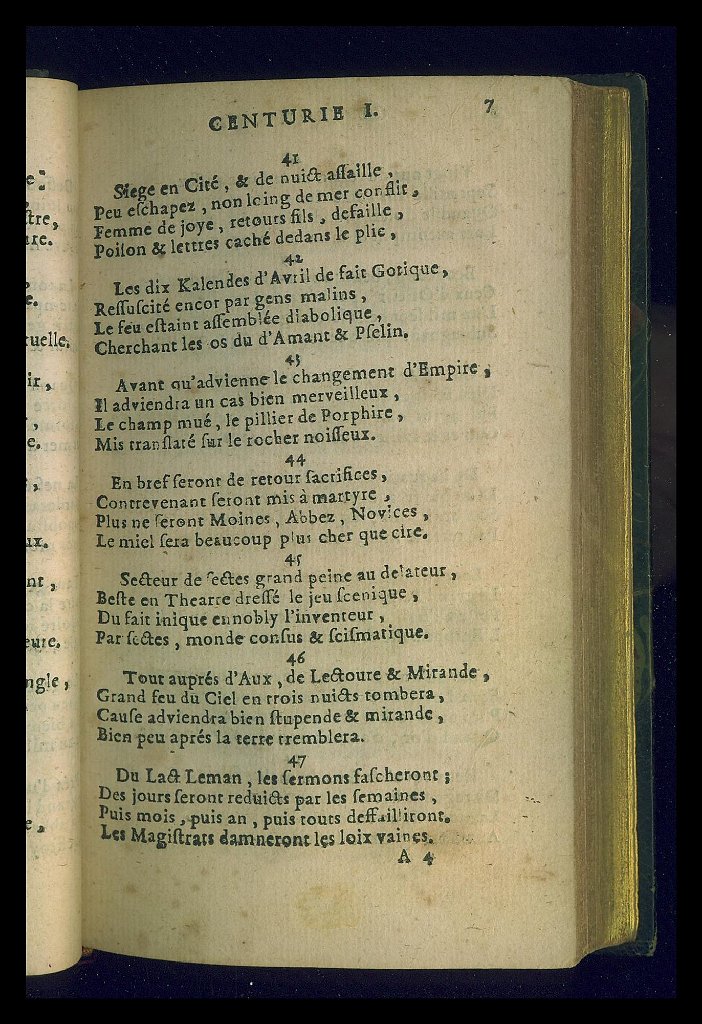 CENTURIE I. 7
41
Siege en Cité, & de nuict aſſaille,
Peu eſchapez, non loing de mer conflit,
Femme de joye, retours fils, defaille,
Poiſon & lettres caché dedans le plic,
42
Les dix Kalendes d'Avril de fait Gotique,
Reſſuſcité encor par gens malins,
Le feu eſtaint aſſemblée diabolique,
Cherchant les os du d'Amant & Pſelin.
43
Avant qu'advienne le changement d'Empire,
Il adviendra un cas bien merveilleux,
Le champ mué, le pillier de Porphire,
Mis tranſlaté ſur le rocher noiſſeux.
44
En bref ſeront de retour ſacrifices,
Contrevenant ſeront mis à martyre,
Plus ne ſeront Moines, Abbez, Novices,
Le miel ſera beaucoup plus cher que cire.
45
Secteur de ſectes grand peine au delateur,
Beſte en Thearre dreſſé le jeu ſcenique,
Du fait inique ennobly l'inventeur,
Par ſectes, monde confus & ſciſmatique.
46
Tout auprés d'Aux, de Lectoure & Mirande,
Grand feu du Ciel en trois nuicts tombera,
Cauſe adviendra bien ſtupende & mirande,
Bien peu aprés la terre tremblera.
47
Du Lact Leman, les ſermons faſcheront;
Des jours ſeront reduicts par les ſemaines,
Puis mois, puis an, puis touts deffailliront.
Les Magiſtrats damneront les loix vaines.
A 4